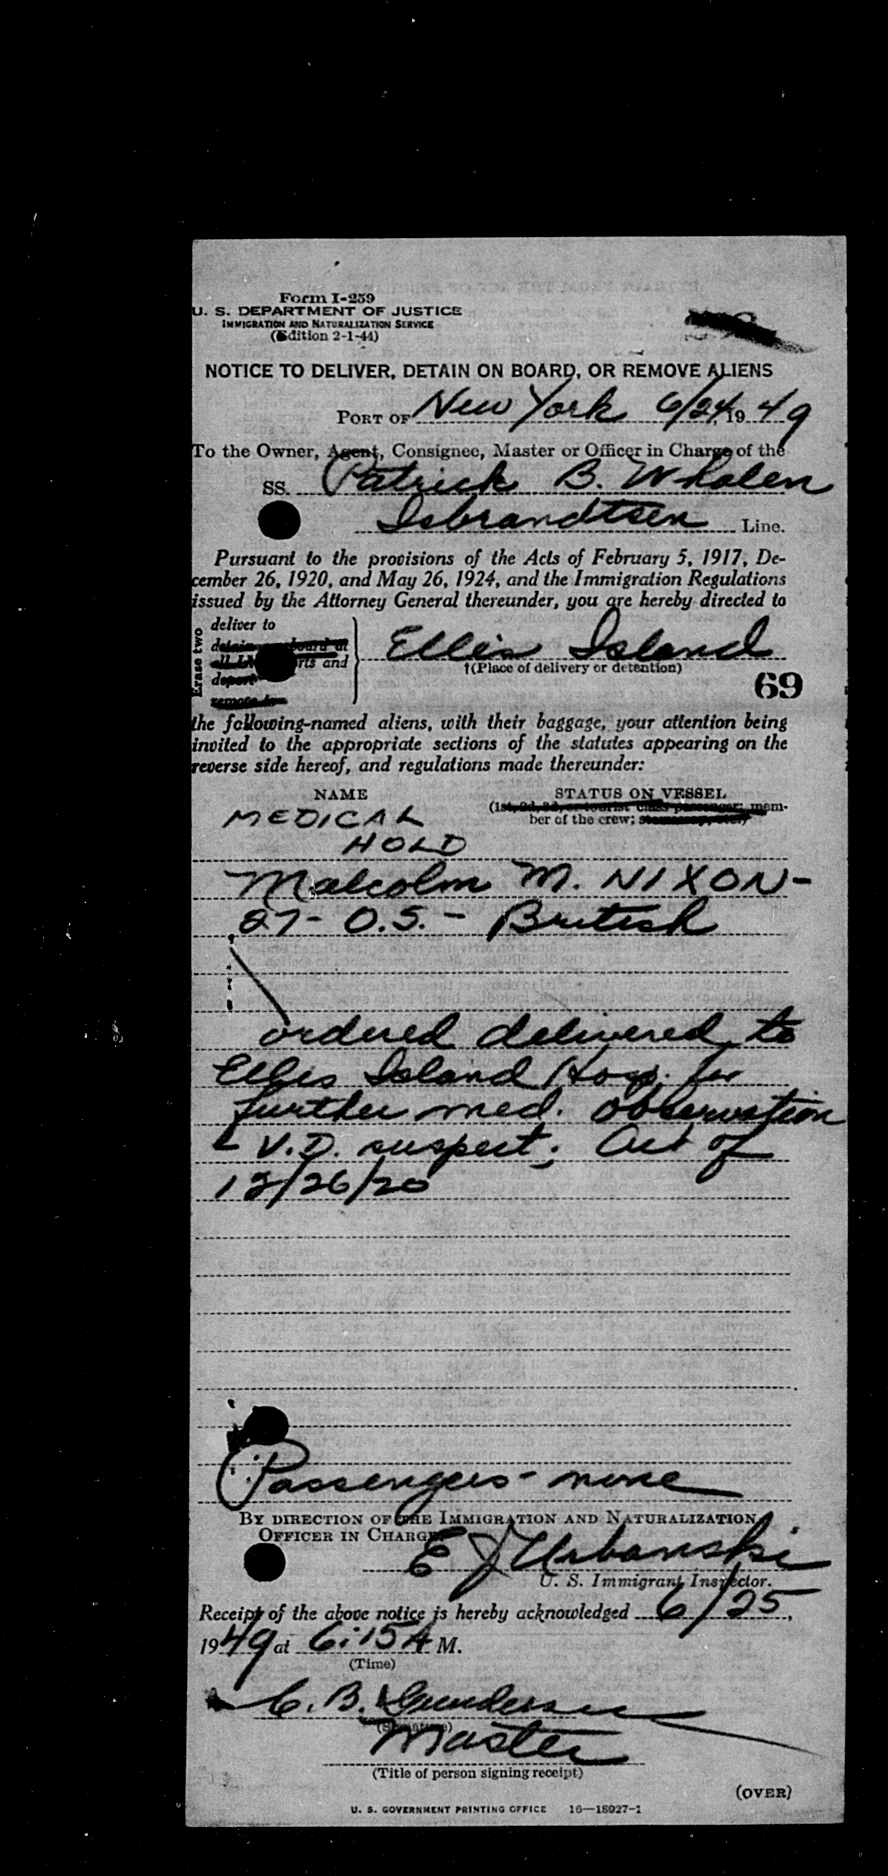 Form I-259
U. S. DEPARTMENT OF JUSTICE
IMMIGRATION AND NATURALIZATION SERVICE
(Edition 2-1-44)
NOTICE TO DELIVER, DETAIN ON BOARD, OR REMOVE ALIENS
PORT OF New York 6/24, 1949
To the Owner, Agent, Consignee, Master or Officer in Charge of the
SS. Patrick B. Whalen
Isbrandtsen Line.
Pursuant to the provisions of the Acts of February 5, 1917, De-
cember 26, 1920, and May 26, 1924, and the Immigration Regulations
issued by the Attorney General thereunder, you are hereby directed to
Erase two
deliver to
detain board at
rts and
deport
remote to
Ellis Island
†(Place of delivery or detention)
69
the following-named aliens, with their baggage, your attention being
invited to the appropriate sections of the statutes appearing on the
reverse side hereof, and regulations made thereunder:
NAME STATUS ON VESSEL
(1st, 2d, 3d, or tourist class passenger; mem-
ber of the crew;
MEDICAL
HOLD
Malcolm M. NIXON-
27- O.S. - British
ordered delivered to
Ellis Island Hosp. for
further med. observation
- V.D. suspect; Act of
12/26/20
Passengers - none
BY DIRECTION OF THE IMMIGRATION AND NATURALIZATION
OFFICER IN CHARGE
E J Urbanski
U. S. Immigrant Inspector.
Receipt of the above notice is hereby acknowledged 6/25,
1949 at 6:15 A M.
(Time)
C. B. Gundersen
(Signature)
Master
(Title of person signing receipt)
(OVER)
U. S. GOVERNMENT PRINTING OFFICE 16—18927-1